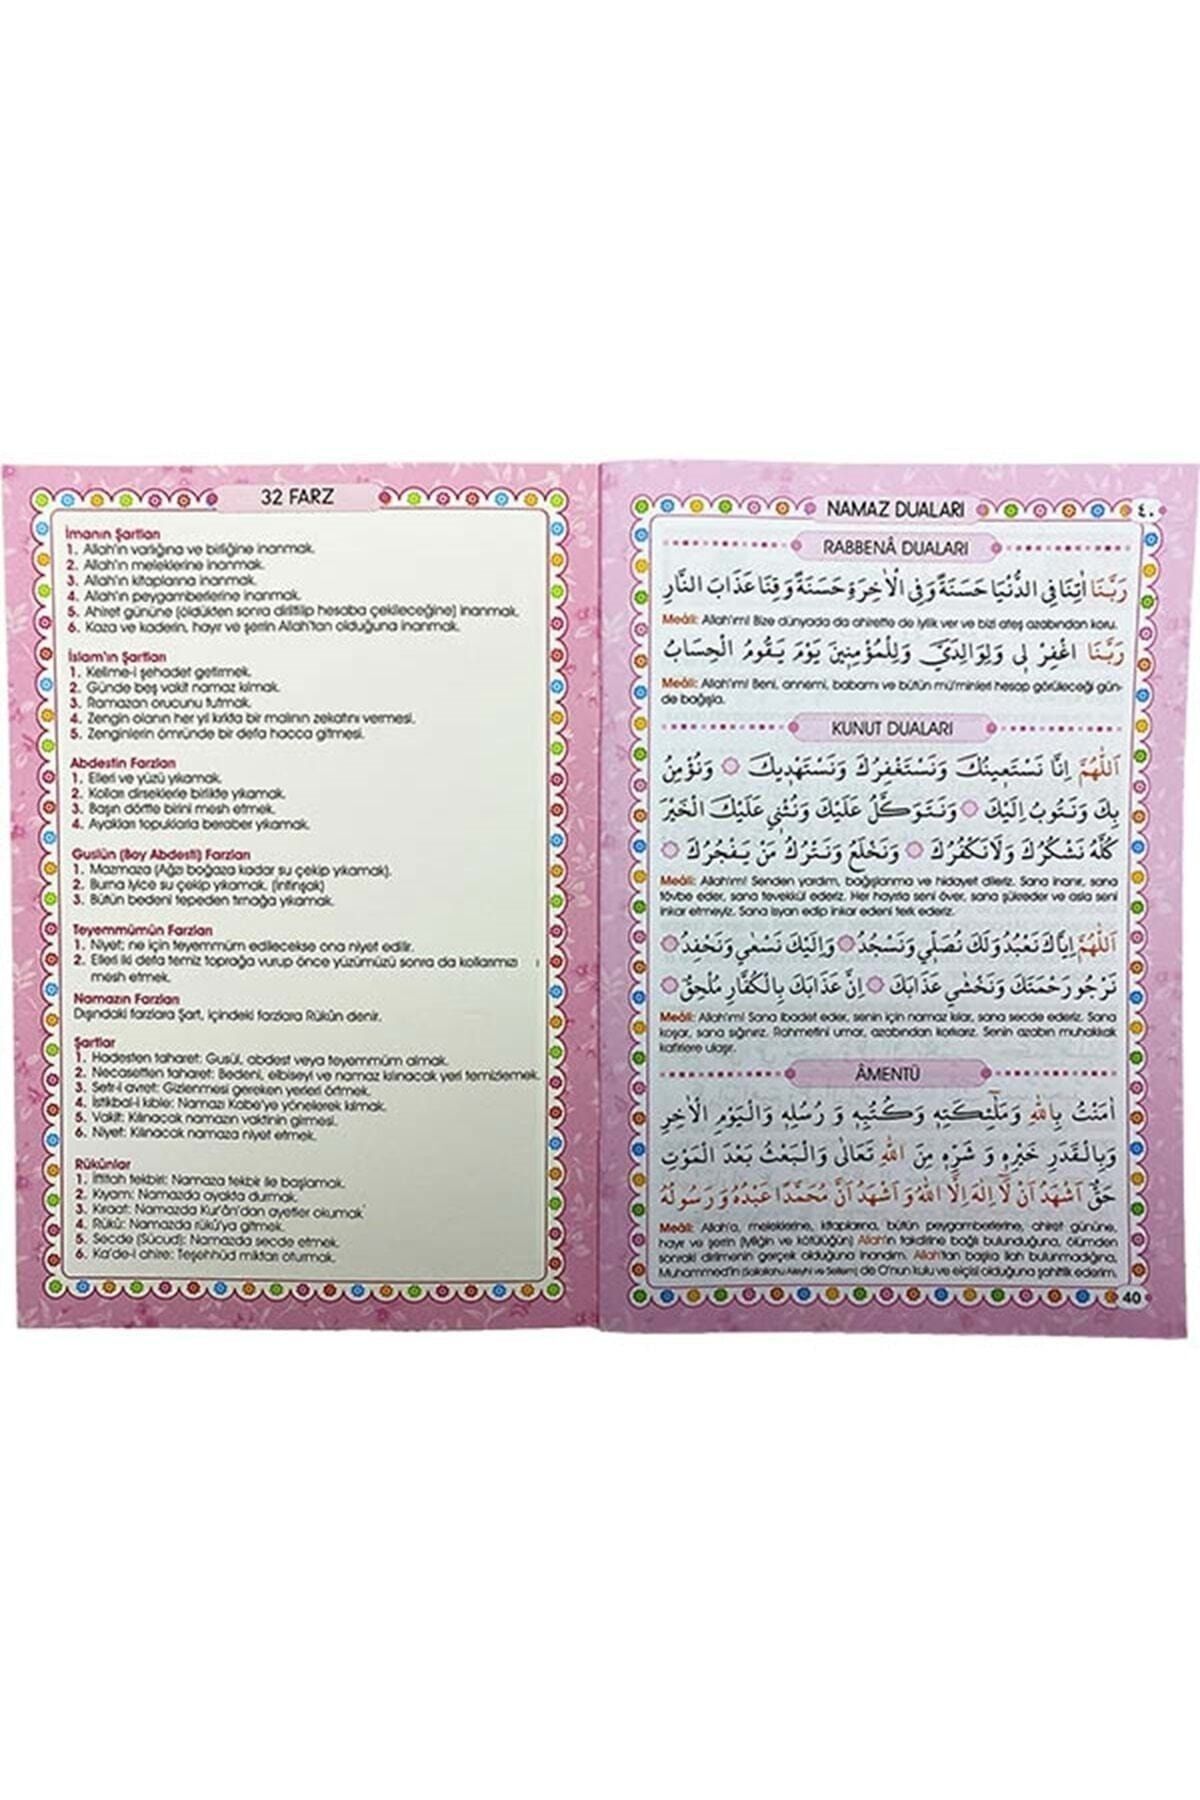 32 FARZ
İmanın Şartları
1. Allah'ın varlığına ve birliğine inanmak.
2. Allah'ın meleklerine inanmak.
3. Allah'ın kitaplarına inanmak.
4. Allah'ın peygamberlerine inanmak.
5. Ahiret gününe (öldükten sonra diriltilip hesaba çekileceğine) inanmak.
6. Kaza ve kaderin, hayır ve şerrin Allah'tan olduğuna inanmak.
İslam'ın Şartları
1. Kelime-i şehadet getirmek.
2. Günde beş vakit namaz kılmak.
3. Ramazan orucunu tutmak.
4. Zengin olanın her yıl kırkta bir malının zekatını vermesi.
5. Zenginlerin ömründe bir defa hacca gitmesi.
Abdestin Farzları
1. Elleri ve yüzü yıkamak.
2. Kolları dirseklerle birlikte yıkamak.
3. Başın dörtte birini mesh etmek.
4. Ayakları topuklarla beraber yıkamak.
Guslün (Boy Abdesti) Farzları
1. Mazmaza (Ağzı boğaza kadar su çekip yıkamak).
2. Burna iyice su çekip yıkamak. (intinşak)
3. Bütün bedeni tepeden tırnağa yıkamak.
Teyemmümün Farzları
1. Niyet; ne için teyemmüm edilecekse ona niyet edilir.
2. Elleri iki defa temiz toprağa vurup önce yüzümüzü sonra da kollarımızı
mesh etmek.
Namazın Farzları
Dışındaki farzlara Şart, içindeki farzlara Rükün denir.
Şartlar
1. Hadesten taharet: Gusül, abdest veya teyemmüm almak.
2. Necasetten taharet: Bedeni, elbiseyi ve namaz kılınacak yeri temizlemek.
3. Setr-i avret: Gizlenmesi gereken yerleri örtmek.
4. İstikbal-i kıble: Namazı Kabe'ye yönelerek kılmak.
5. Vakit: Kılınacak namazın vaktinin girmesi.
6. Niyet: Kılınacak namaza niyet etmek.
Rükünlar
1. İftitah tekbiri: Namaza tekbir ile başlamak.
2. Kıyam: Namazda ayakta durmak.
3. Kıraat: Namazda Kur'ân'dan ayetler okumak
4. Rükû: Namazda rükû'ya gitmek.
5. Secde (Sücud): Namazda secde etmek.
6. Ka'de-i ahire: Teşehhüd miktarı oturmak.
NAMAZ DUALARI
٤٠
RABBENÂ DUALARI
رَبَّنَا اٰتِنَا فِى الدُّنْيَا حَسَنَةً وَفِى الْاٰخِرَةِ حَسَنَةً وَقِنَا عَذَابَ النَّارِ
Meâli: Allah'ım! Bize dünyada da ahirette de iyilik ver ve bizi ateş azabından koru.
رَبَّنَا اغْفِرْ لِى وَلِوَالِدَيَّ وَلِلْمُؤْمِنِينَ يَوْمَ يَقُومُ الْحِسَابُ
Meâli: Allah'ım! Beni, annemi, babamı ve bütün mü'minleri hesap görüleceği gün-
de bağışla.
KUNUT DUALARI
اَللّٰهُمَّ اِنَّا نَسْتَعِينُكَ وَنَسْتَغْفِرُكَ وَنَسْتَهْدِيكَ ۞ وَنُؤْمِنُ
بِكَ وَنَتُوبُ اِلَيْكَ ۞ وَنَتَوَكَّلُ عَلَيْكَ وَنُثْنِى عَلَيْكَ الْخَيْرَ
كُلَّهُ نَشْكُرُكَ وَلَا نَكْفُرُكَ ۞ وَنَخْلَعُ وَنَتْرُكُ مَنْ يَفْجُرُكَ ۞
Meâli: Allah'ım! Senden yardım, bağışlanma ve hidayet dileriz. Sana inanır, sana
tövbe eder, sana tevekkül ederiz. Her hayırla seni över, sana şükreder ve asla seni
inkar etmeyiz. Sana isyan edip inkar edeni terk ederiz.
اَللّٰهُمَّ اِيَّاكَ نَعْبُدُ وَلَكَ نُصَلِّى وَنَسْجُدُ ۞ وَاِلَيْكَ نَسْعٰى وَنَحْفِدُ ۞
نَرْجُو رَحْمَتَكَ وَنَخْشٰى عَذَابَكَ ۞ اِنَّ عَذَابَكَ بِالْكُفَّارِ مُلْحِقٌ ۞
Meâli: Allah'ım! Sana ibadet eder, senin için namaz kılar, sana secde ederiz. Sana
koşar, sana sığınırız. Rahmetini umar, azabından korkarız. Senin azabın muhakkak
kafirlere ulaşır.
ÂMENTÜ
اٰمَنْتُ بِاللّٰهِ وَمَلٰٓئِكَتِهِ وَكُتُبِهِ وَ رُسُلِهِ وَالْيَوْمِ الْاٰخِرِ
وَبِالْقَدَرِ خَيْرِهِ وَ شَرِّهِ مِنَ اللّٰهِ تَعَالٰى وَالْبَعْثُ بَعْدَ الْمَوْتِ
حَقٌّ اَشْهَدُ اَنْ لَٓا اِلٰهَ اِلَّا اللّٰهُ وَ اَشْهَدُ اَنَّ مُحَمَّدًا عَبْدُهُ وَ رَسُولُهُ
Meâli: Allah'a, meleklerine, kitaplarına, bütün peygamberlerine, ahiret gününe,
hayır ve şerrin (iyiliğin ve kötülüğün) Allah'ın takdirine bağlı bulunduğuna, ölümden
sonraki dirilmenin gerçek olduğuna inandım. Allah'tan başka ilah bulunmadığına,
Muhammed'in (Sallallahu Aleyhi ve Sellem) de O'nun kulu ve elçisi olduğuna şahitlik ederim.
40